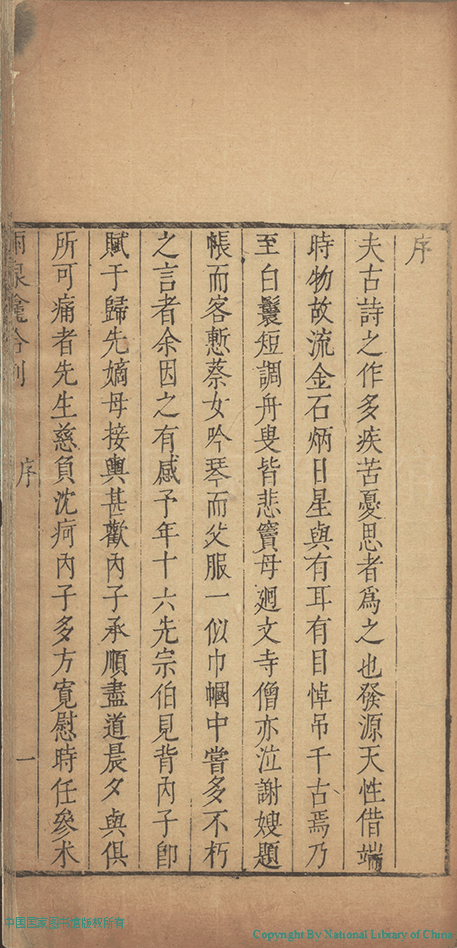 序
夫古詩之作多疾苦憂思者爲之也發源天性借端
時物故流金石炳日星與有耳有目悼吊千古焉乃
至白鬟短調舟叟皆悲竇母廻文寺僧亦泣謝嫂題
帳而客慙蔡女吟琴而父服一似巾幗中嘗多不朽
之言者余因之有感予年十六先宗伯見背內子卽
賦于歸先嫡母接輿甚歡內子承順盡道晨夕與俱
所可痛者先生慈負沈疴內子多方寬慰時任參朮
合刻 序 一
中国国家图书馆版权所有
Copyright By National Library of China